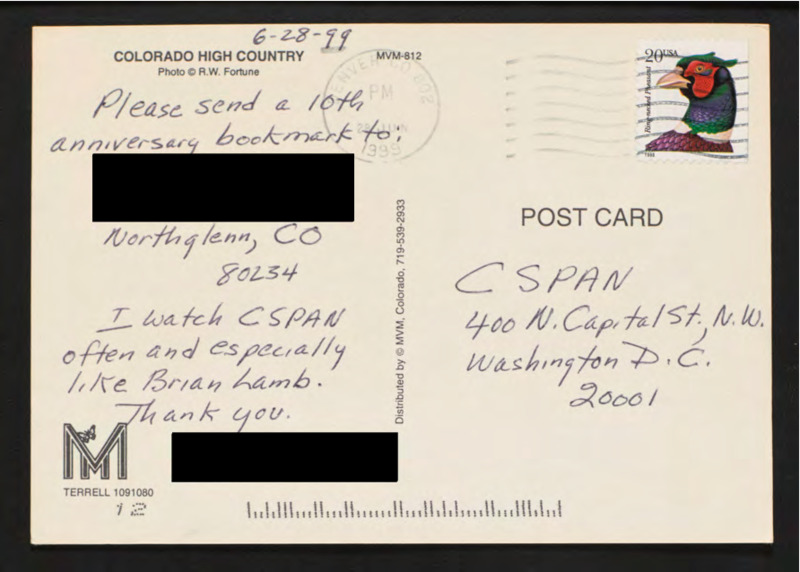 6-28-99
COLORADO HIGH COUNTRY
Photo © R.W. Fortune
MVM-812
Please send a 10th
anniversary bookmark to:
Northglenn, CO
80234
I watch CSPAN
often and especially
like Brian Lamb.
Thank you.
TERRELL 1091080
12
Distributed by © MVM, Colorado, 719-539-2933
DENVER CO 802
PM
1999
20USA
Ring-necked Pheasant
1998
POST CARD
CSPAN
400 N. Capital St., N.W.
Washington D.C.
20001